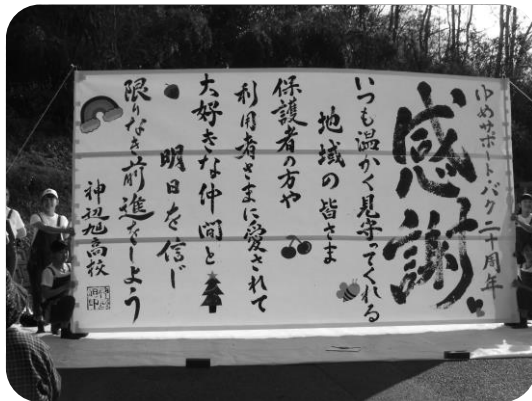 ゆめサポートバク二十周年
感謝
いつも温かく見守ってくれる
地域の皆さま
保護者の方や
利用者さまに愛されて
大好きな仲間と
明日を信じ
限りなき前進をしよう
神辺旭高校